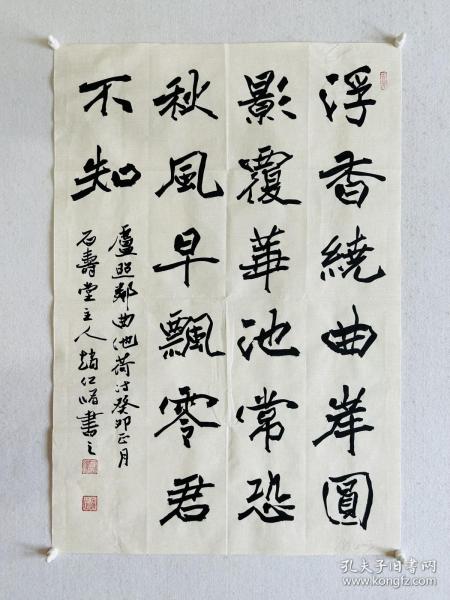 浮香繞曲岸圓
影覆華池常恐
秋風早飄零君
不知
盧照鄰曲池荷詩癸卯正月
石壽堂主人趙仁皆書之
孔夫子旧书网
www.kongfz.com